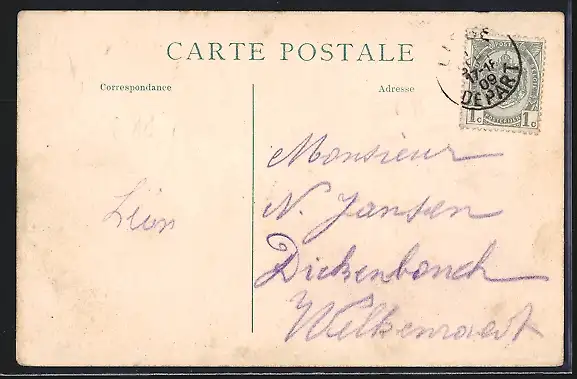 CARTE POSTALE
Correspondance
Adresse
LIEGE
17-18
09
DEPART
1c 1c
Léon
Monsieur
N. Jansen
Welkenraedt